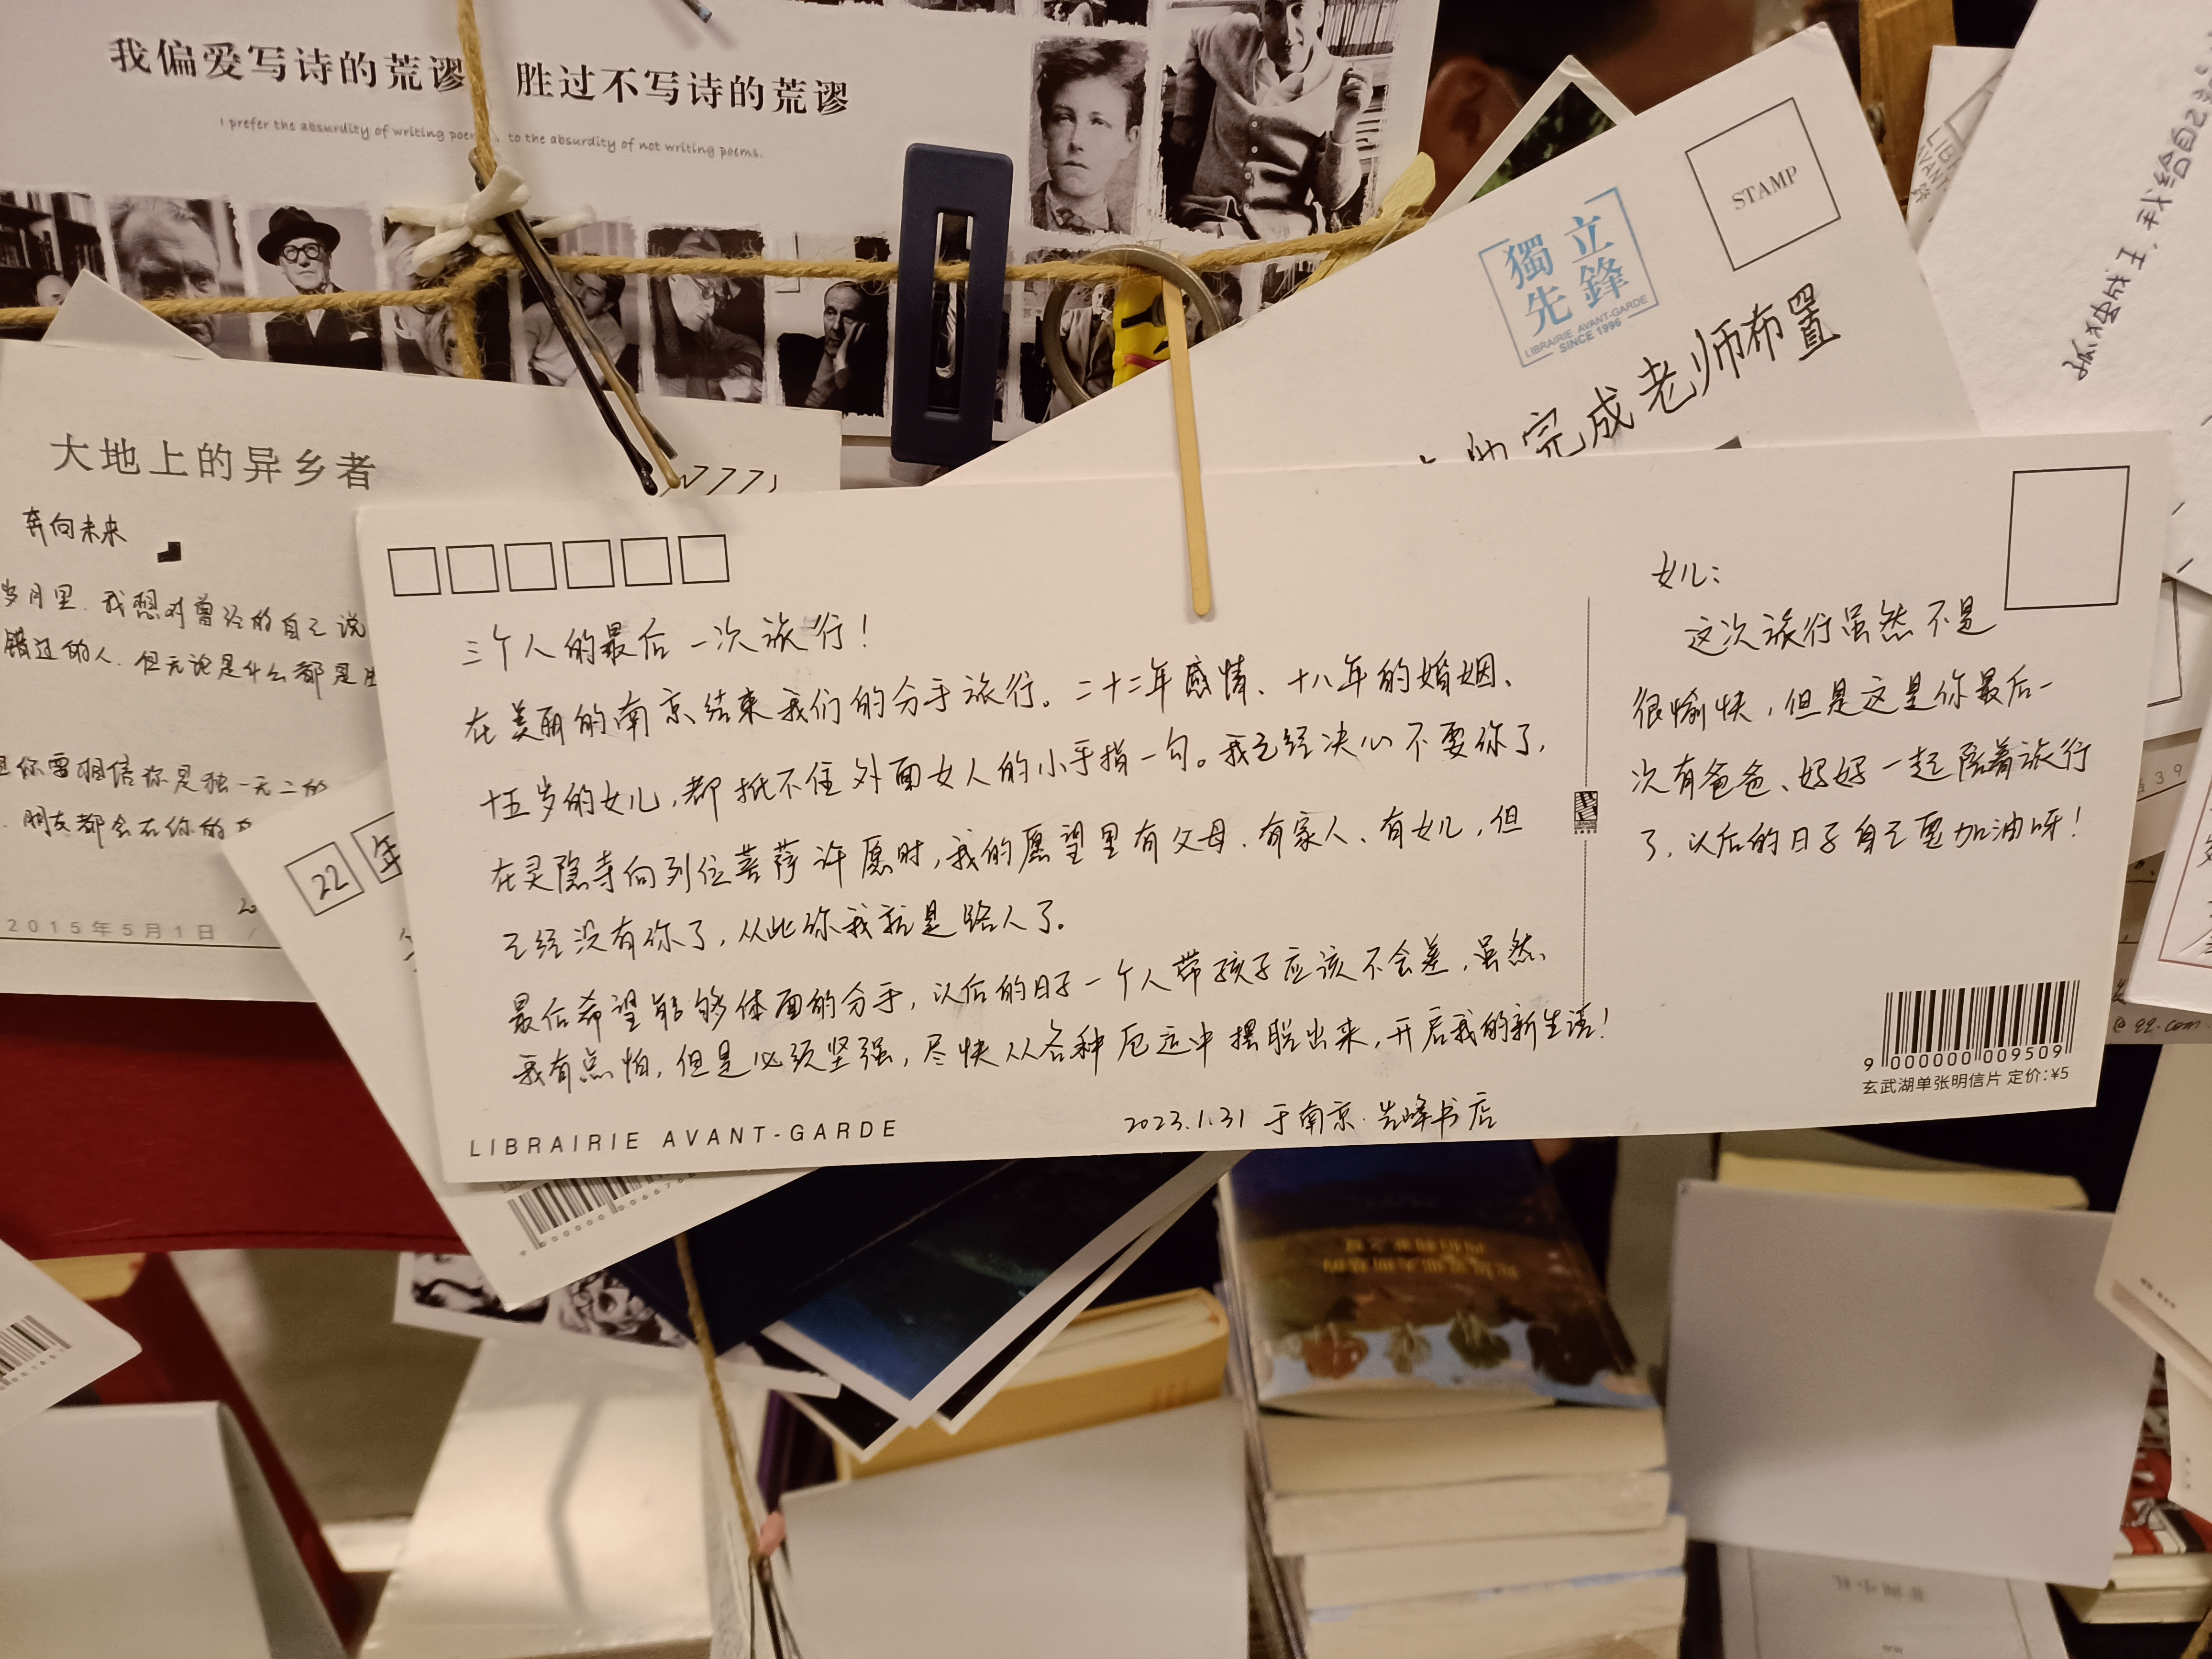 我偏爱写诗的荒谬 胜过不写诗的荒谬
I prefer the absurdity of writing poems, to the absurdity of not writing poems.
STAMP
獨立
先鋒
LIBRAIRIE AVANT-GARDE
SINCE 1996
完成老师布置
大地上的异乡者
奔向未来
岁月里.我想对曾经的自己说
错过的人.但无论是什么都是
你要相信你是独一无二的
朋友都会在你的
2015年5月1日 /
22 年
三个人的最后一次旅行!
在美丽的南京结束我们的分手旅行。二十二年感情、十八年的婚姻、
十五岁的女儿,都抵不住外面女人的小手指一勾。我已经决心不要你了,
在灵隐寺向列位菩萨许愿时,我的愿望里有父母.有家人、有女儿,但
已经没有你了,从此你我就是路人了。
最后希望能够体面的分手,以后的日子一个人带孩子应该不会差,虽然、
我有点怕,但是必须坚强,尽快从各种厄运中摆脱出来,开启我的新生活!
2023.1.31 于南京.先峰书店
LIBRAIRIE AVANT-GARDE
女儿:
这次旅行虽然不是
很愉快,但是这是你最后一
次有爸爸、妈妈一起陪着旅行
了,以后的日子自己要加油呀!
9 000000 009509
玄武湖单张明信片 定价:¥5
@qq.com